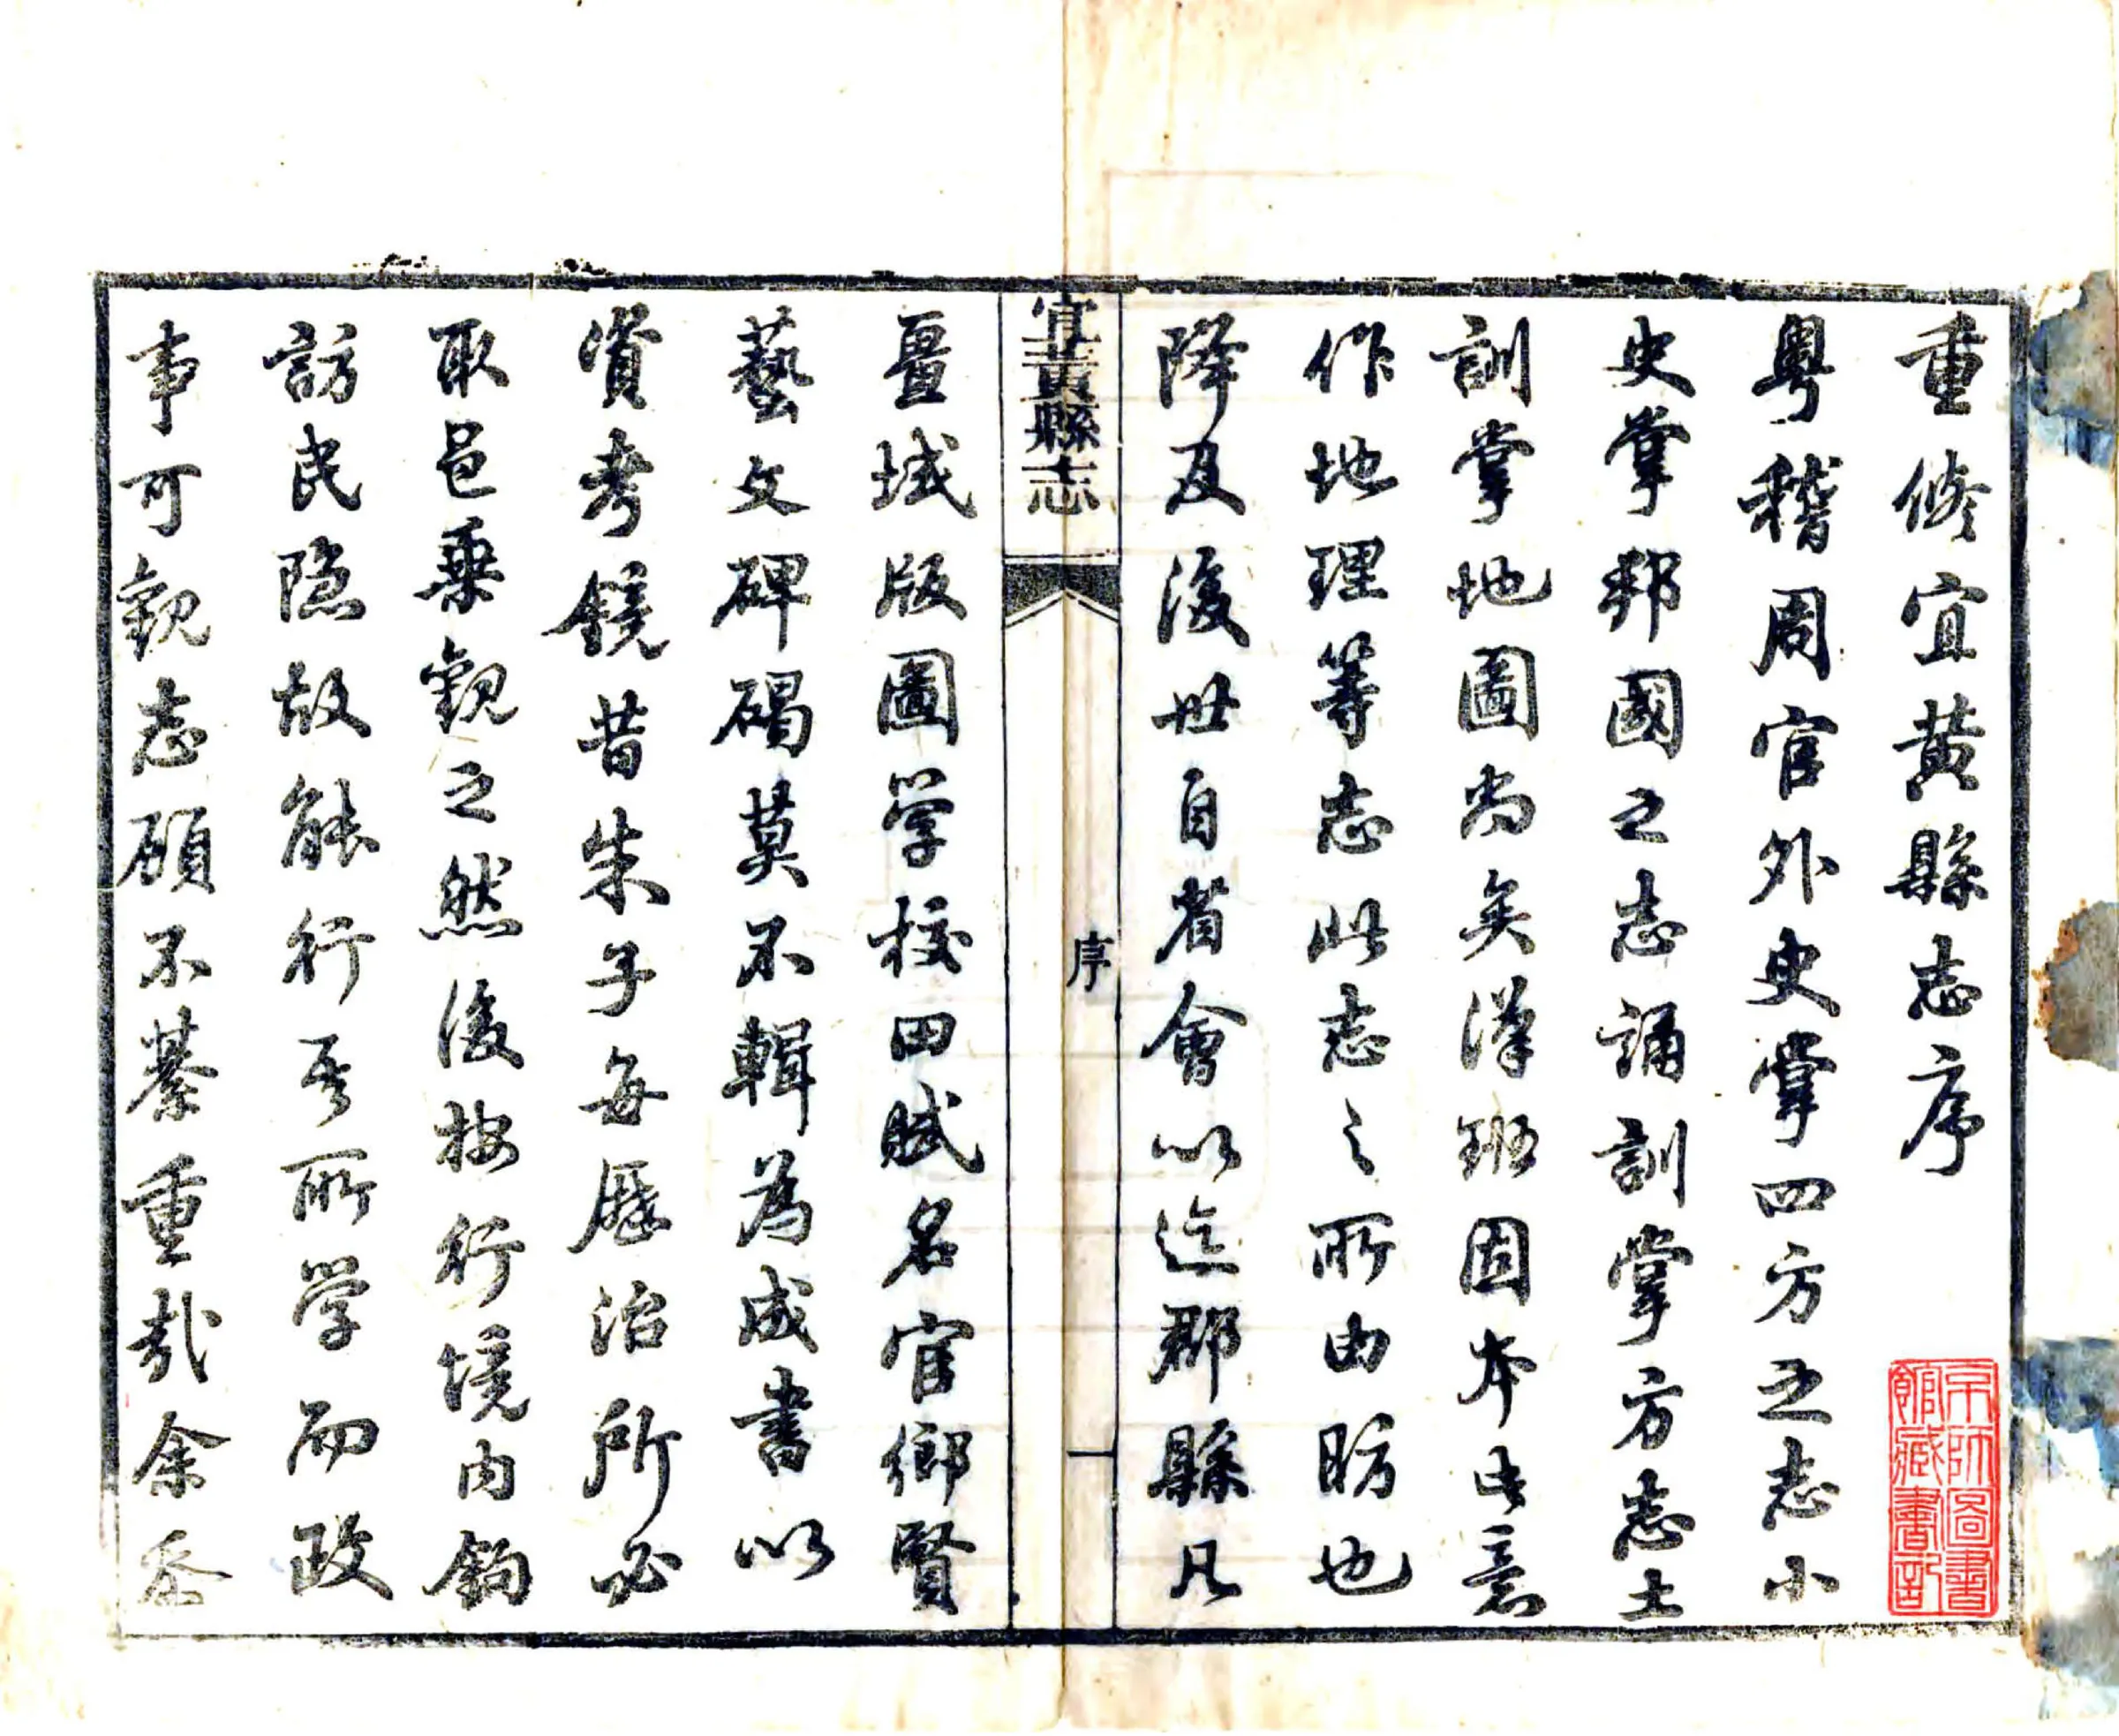 重修宜黃縣志序
粵稽周官外史掌四方之志小
史掌邦國之志誦訓掌方志土
訓掌地圖尚矣漢班固本此意
作地理等志此志之所由昉也
降及後世自省會以迄郡縣凡
宜黃縣志
序
一
疆域版圖學校田賦名宦鄉賢
藝文碑碣莫不輯為成書以
資考鏡昔朱子每歷治所必
取邑乘觀之然後按行境內鉤
訪民隱故能行吾所學而政
事可觀志顧不綦重哉余忝
圖書
館藏書記